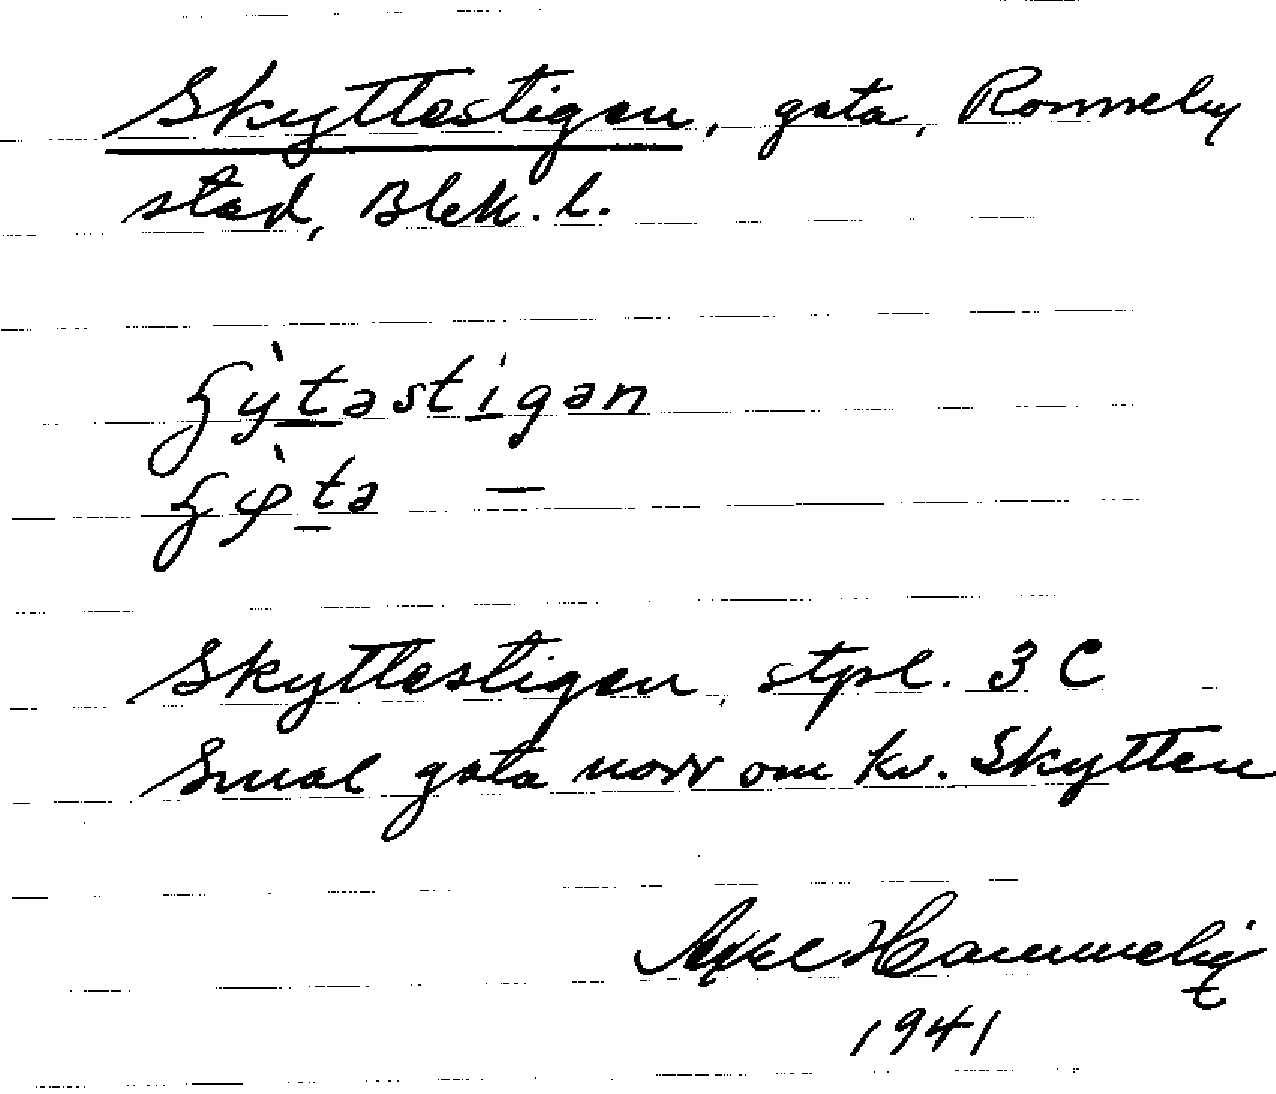 Skyttestigen, gata, Ronneby
stad, Blek. l.
ʃy�ọ̀təstigən
Skyttestigen, stpl. 3 C
Smal gata norr om kv. Skytten
1941